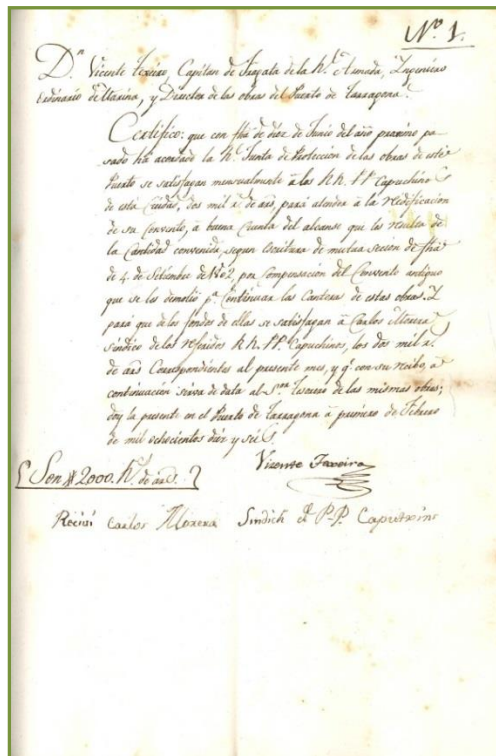 Nº 1.
Dn. Vicente Texeiro, Capitan de Fragata de la Rl. Armada, Ingeniero
Ordinario de Marina, y Director de las obras del Puerto de Tarragona.
Certifico: que con fha de diez de Junio del año proximo pa-
sado ha acordado la Rl. Junta de Proteccion de las obras de este
Puerto se satisfagan mensualmente à los RR. PP. Capuchinos
de esta Ciudad, dos mil rs. de ards. para atender à la reedificacion
de su Convento, à buena Cuenta del alcanse que les resulta de
la Cantidad convenida, segun escritura de mutua secion de fha
de 4. de Setiembre de 1802, por compensacion del Convento antiguo
que se les demolió pa. Continuar las Canteras de estas obras. Y
para que de los fondos de ellas se satisfagan à Carlos Morera
Sindico de los referidos RR. PP. Capuchinos, los dos mil rs.
de ards. Correspondientes al presente mes, y qe. con su recibo, à
continuacion sirva de data al Sor. Tesorero de las mismas obras;
doy la presente en el Puerto de Tarragona à primero de Febrero
de mil ochocientos diez y seis.
Vicente Texeiro
Son # 2000. Rs. de ards.
Recivi Carlos Morera Sindich d. P.P. Caputxins